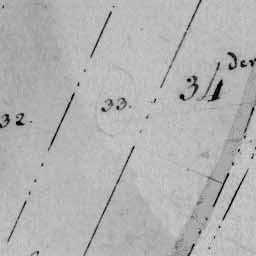 32.
33.
34 der